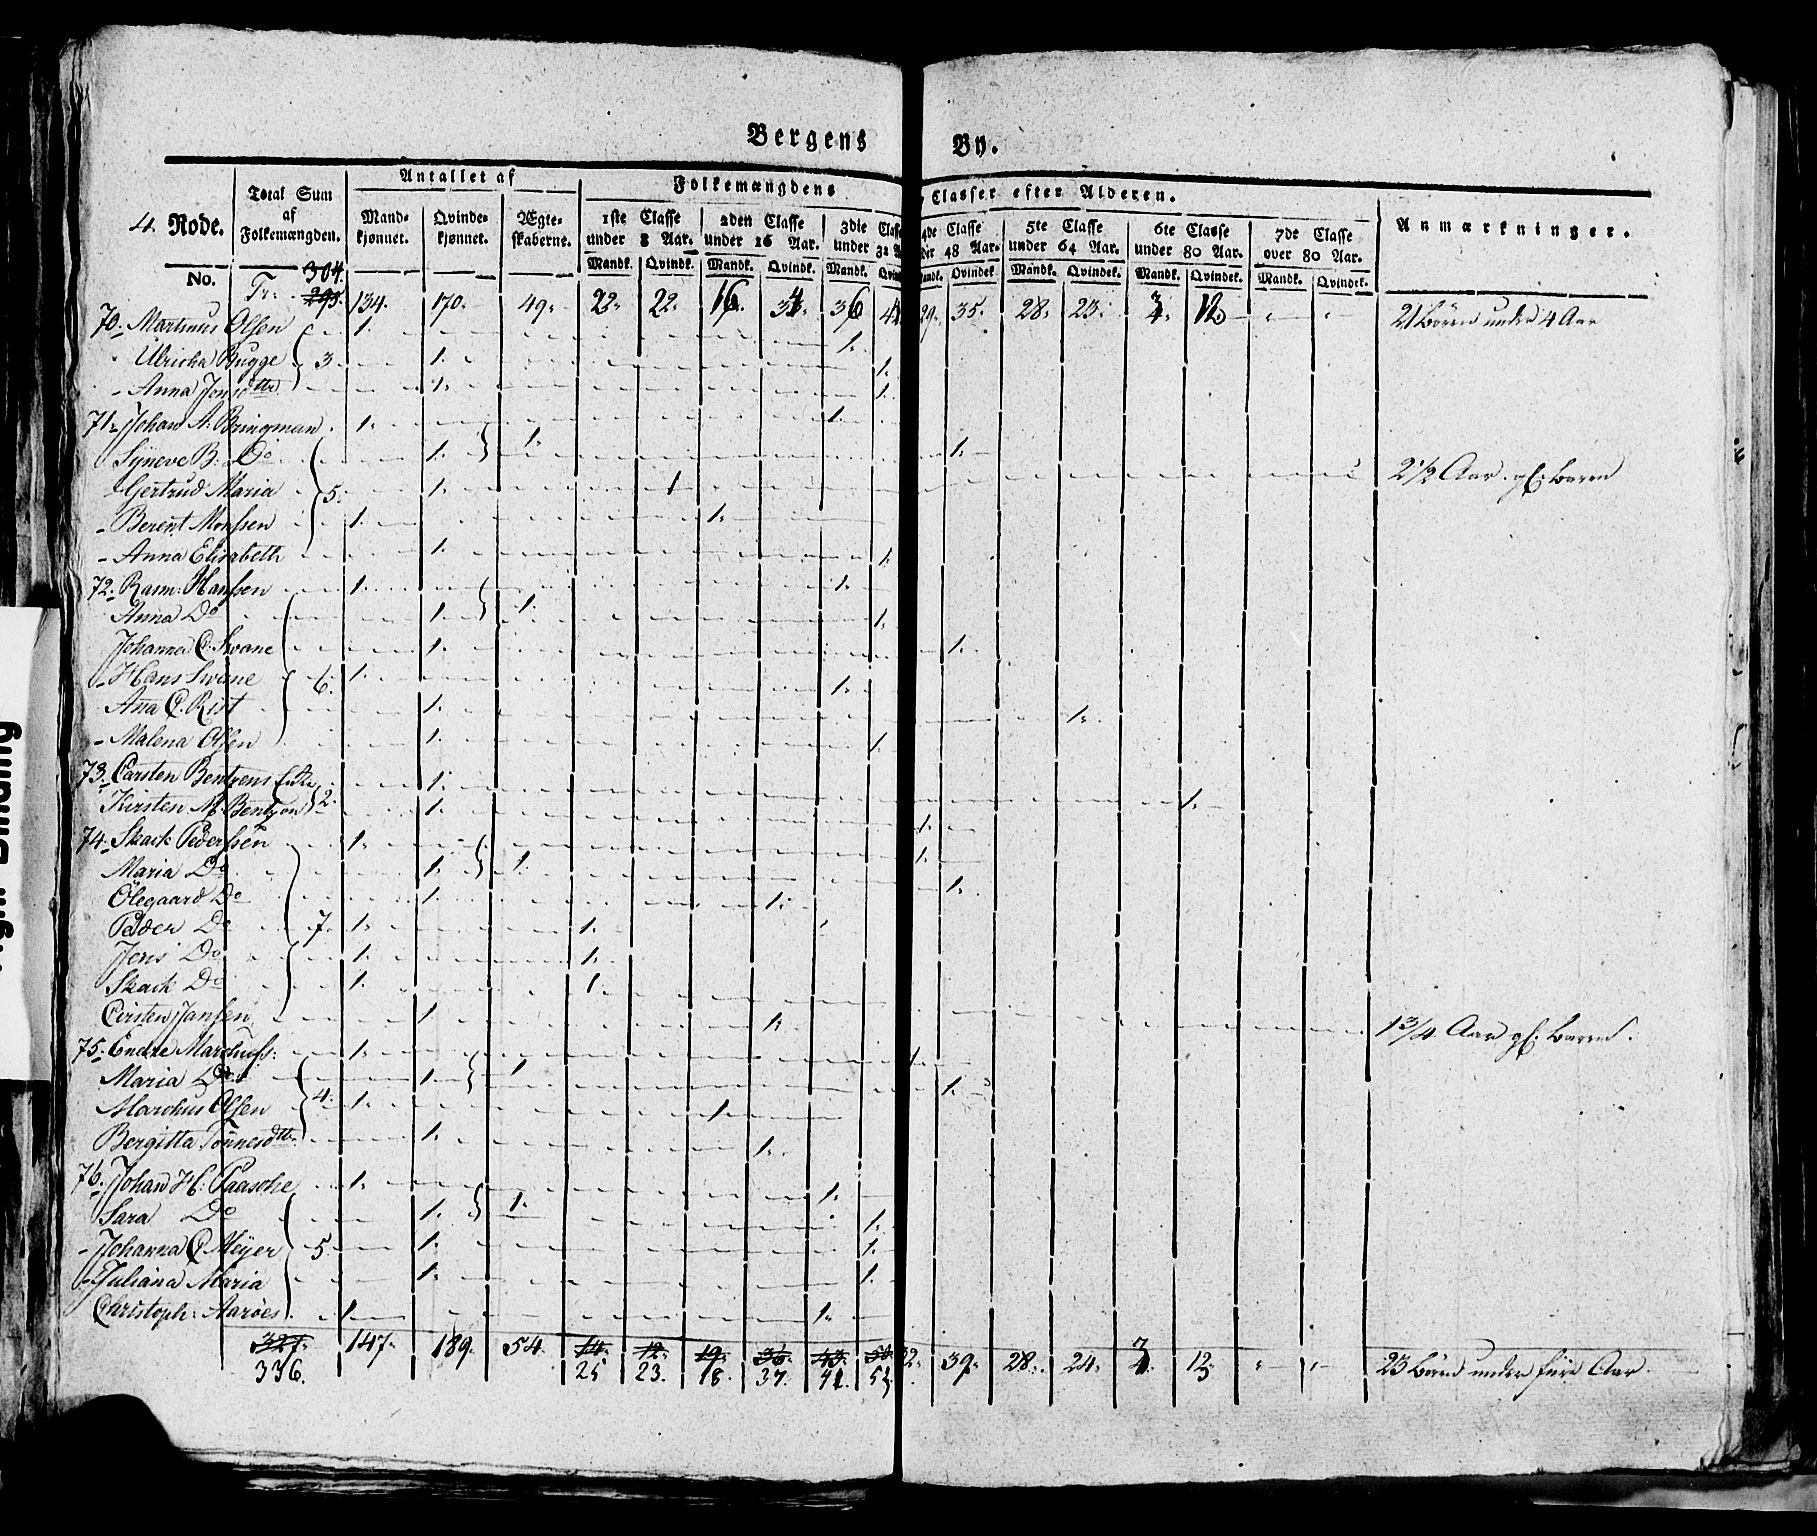 Bergens By.
4. Rode. Total Sum af Folkemængden. Antallet af Folkemængdens Classer efter Alderen. Anmærkninger.
Mandkjønnet. Qvindekjønnet. Ægteskaberne. 1ste Classe under 8 Aar. 2den Classe under 16 Aar. 3die Classe under 32 Aar. 4de Classe under 48 Aar. 5te Classe under 64 Aar. 6te Classe under 80 Aar. 7de Classe over 80 Aar.
No. Mandk. Qvindk. Mandk. Qvindk. Mandk. Mandk. Qvindek. Mandk. Qvindek. Mandk. Qvindek.
Tr: 304. 134. 170. 49. 22. 22. 16. 34. 36 29. 35. 28. 23. 12. 21 Børn under 4 Aar
70. Martinus Olsen 1. 1.
Ulricha Bugge 3. 1. 1.
Anna Jensdttr 1. 1.
71. Johan A. Bringman 1. 1.
Syneve B. Do 1. 1. 1.
Gertrud Maria 5. 1. 1 2 1/2 Aar gl. Barn
Berent Monsen 1. 1.
Anna Elisabeth 1. 1.
72. Rasm: Hansen 1. 1.
Anna Do 1. 1. 1.
Johanna C. Svane 1. 1.
Hans Svane 6. 1. 1.
Aña C. Rist 1. 1.
Malena Olsen 1. 1.
73. Carsten Bentzens Enke 1. 1.
Kirsten M. Bentzon 2. 1. 1.
74. Skack Pedersen 1. 1.
Maria Do 1. 1. 1.
Olegaard Do 1. 1.
Peder Do 7. 1. 1.
Jens Do 1. 1.
Skack Do 1. 1.
Cirsten Jansen 1. 1. 1 3/4 Aar gl. Barn.
75. Endre Marchuss: 1. 1.
Maria Do 1. 1. 1.
Marchus Olsen 4. 1. 1.
Bergitta Tönnesdttr 1. 1.
76. Johan H. Paasche 1. 1.
Sara Do 1. 1. 1.
Johanna C. Meyer 5. 1. 1.
Juliana Maria 1. 1.
Christoph: Aaröes 1. 1.
327. 147. 189. 54. 14. 12. 19. 36. 43. 32. 39. 28. 24. 12. 23 Børn under fire Aar
336. 25 23. 18. 37.